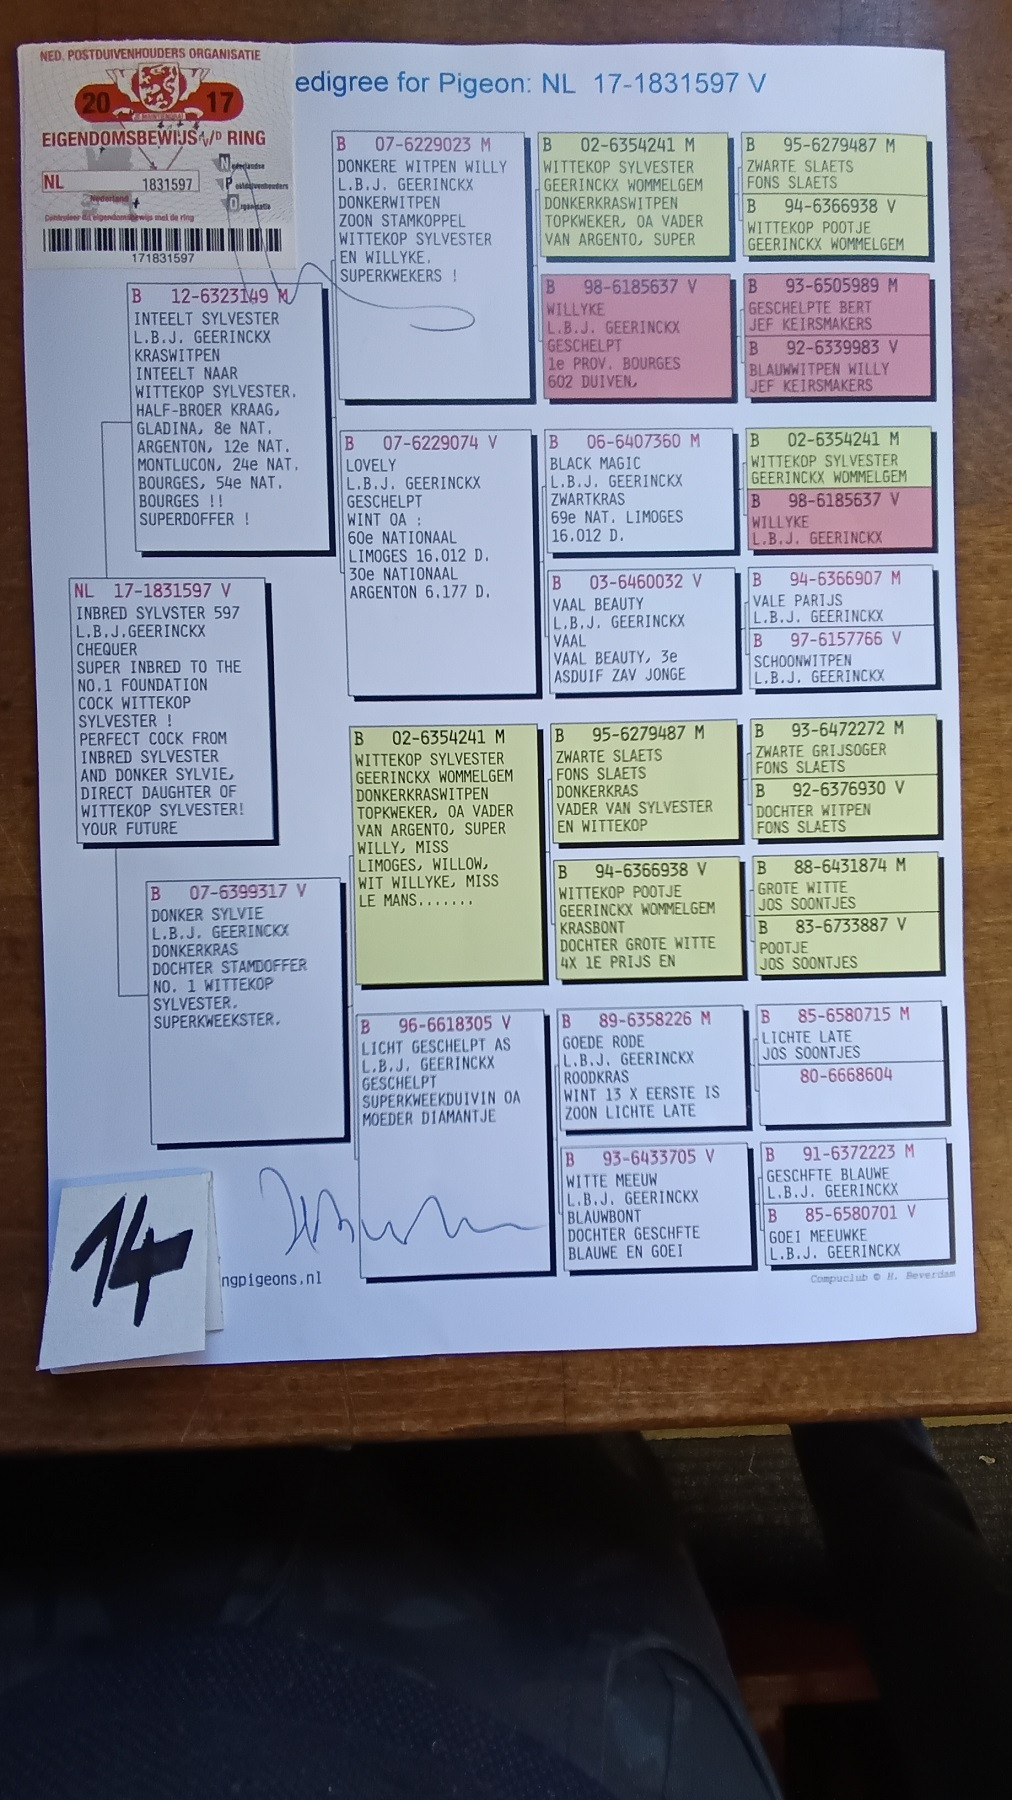 NED. POSTDUIVENHOUDERS ORGANISATIE
20 17
EIGENDOMSBEWIJS v/D RING
NL 1831597
Nederland
Nederlandse
Postduivenhouders
Organisatie
Controleer dit eigendomsbewijs met de ring
171831597
edigree for Pigeon: NL 17-1831597 V
B 07-6229023 M
DONKERE WITPEN WILLY
L.B.J. GEERINCKX
DONKERWITPEN
ZOON STAMKOPPEL
WITTEKOP SYLVESTER
EN WILLYKE.
SUPERKWEKERS !
B 02-6354241 M
WITTEKOP SYLVESTER
GEERINCKX WOMMELGEM
DONKERKRASWITPEN
TOPKWEKER, OA VADER
VAN ARGENTO, SUPER
B 95-6279487 M
ZWARTE SLAETS
FONS SLAETS
B 94-6366938 V
WITTEKOP POOTJE
GEERINCKX WOMMELGEM
B 98-6185637 V
WILLYKE
L.B.J. GEERINCKX
GESCHELPT
1e PROV. BOURGES
602 DUIVEN,
B 93-6505989 M
GESCHELPTE BERT
JEF KEIRSMAKERS
B 92-6339983 V
BLAUWWITPEN WILLY
JEF KEIRSMAKERS
B 12-6323149 M
INTEELT SYLVESTER
L.B.J. GEERINCKX
KRASWITPEN
INTEELT NAAR
WITTEKOP SYLVESTER.
HALF-BROER KRAAG,
GLADINA, 8e NAT.
ARGENTON, 12e NAT.
MONTLUCON, 24e NAT.
BOURGES, 54e NAT.
BOURGES !!
SUPERDOFFER !
B 07-6229074 V
LOVELY
L.B.J. GEERINCKX
GESCHELPT
WINT OA :
60e NATIONAAL
LIMOGES 16.012 D.
30e NATIONAAL
ARGENTON 6.177 D.
B 06-6407360 M
BLACK MAGIC
L.B.J. GEERINCKX
ZWARTKRAS
69e NAT. LIMOGES
16.012 D.
B 02-6354241 M
WITTEKOP SYLVESTER
GEERINCKX WOMMELGEM
B 98-6185637 V
WILLYKE
L.B.J. GEERINCKX
B 03-6460032 V
VAAL BEAUTY
L.B.J. GEERINCKX
VAAL
VAAL BEAUTY, 3e
ASDUIF ZAV JONGE
B 94-6366907 M
VALE PARIJS
L.B.J. GEERINCKX
B 97-6157766 V
SCHOONWITPEN
L.B.J. GEERINCKX
NL 17-1831597 V
INBRED SYLVSTER 597
L.B.J.GEERINCKX
CHEQUER
SUPER INBRED TO THE
NO.1 FOUNDATION
COCK WITTEKOP
SYLVESTER !
PERFECT COCK FROM
INBRED SYLVESTER
AND DONKER SYLVIE,
DIRECT DAUGHTER OF
WITTEKOP SYLVESTER!
YOUR FUTURE
B 02-6354241 M
WITTEKOP SYLVESTER
GEERINCKX WOMMELGEM
DONKERKRASWITPEN
TOPKWEKER, OA VADER
VAN ARGENTO, SUPER
WILLY, MISS
LIMOGES, WILLOW,
WIT WILLYKE, MISS
LE MANS.......
B 95-6279487 M
ZWARTE SLAETS
FONS SLAETS
DONKERKRAS
VADER VAN SYLVESTER
EN WITTEKOP
B 93-6472272 M
ZWARTE GRIJSOGER
FONS SLAETS
B 92-6376930 V
DOCHTER WITPEN
FONS SLAETS
B 94-6366938 V
WITTEKOP POOTJE
GEERINCKX WOMMELGEM
KRASBONT
DOCHTER GROTE WITTE
4X 1E PRIJS EN
B 88-6431874 M
GROTE WITTE
JOS SOONTJES
B 83-6733887 V
POOTJE
JOS SOONTJES
B 07-6399317 V
DONKER SYLVIE
L.B.J. GEERINCKX
DONKERKRAS
DOCHTER STAMDOFFER
NO. 1 WITTEKOP
SYLVESTER.
SUPERKWEEKSTER.
B 96-6618305 V
LICHT GESCHELPT AS
L.B.J. GEERINCKX
GESCHELPT
SUPERKWEEKDUIVIN OA
MOEDER DIAMANTJE
B 89-6358226 M
GOEDE RODE
L.B.J. GEERINCKX
ROODKRAS
WINT 13 X EERSTE IS
ZOON LICHTE LATE
B 85-6580715 M
LICHTE LATE
JOS SOONTJES
80-6668604
B 93-6433705 V
WITTE MEEUW
L.B.J. GEERINCKX
BLAUWBONT
DOCHTER GESCHFTE
BLAUWE EN GOEI
B 91-6372223 M
GESCHFTE BLAUWE
L.B.J. GEERINCKX
B 85-6580701 V
GOEI MEEUWKE
L.B.J. GEERINCKX
14
ngpigeons.nl
Compuclub © H. Beverdam